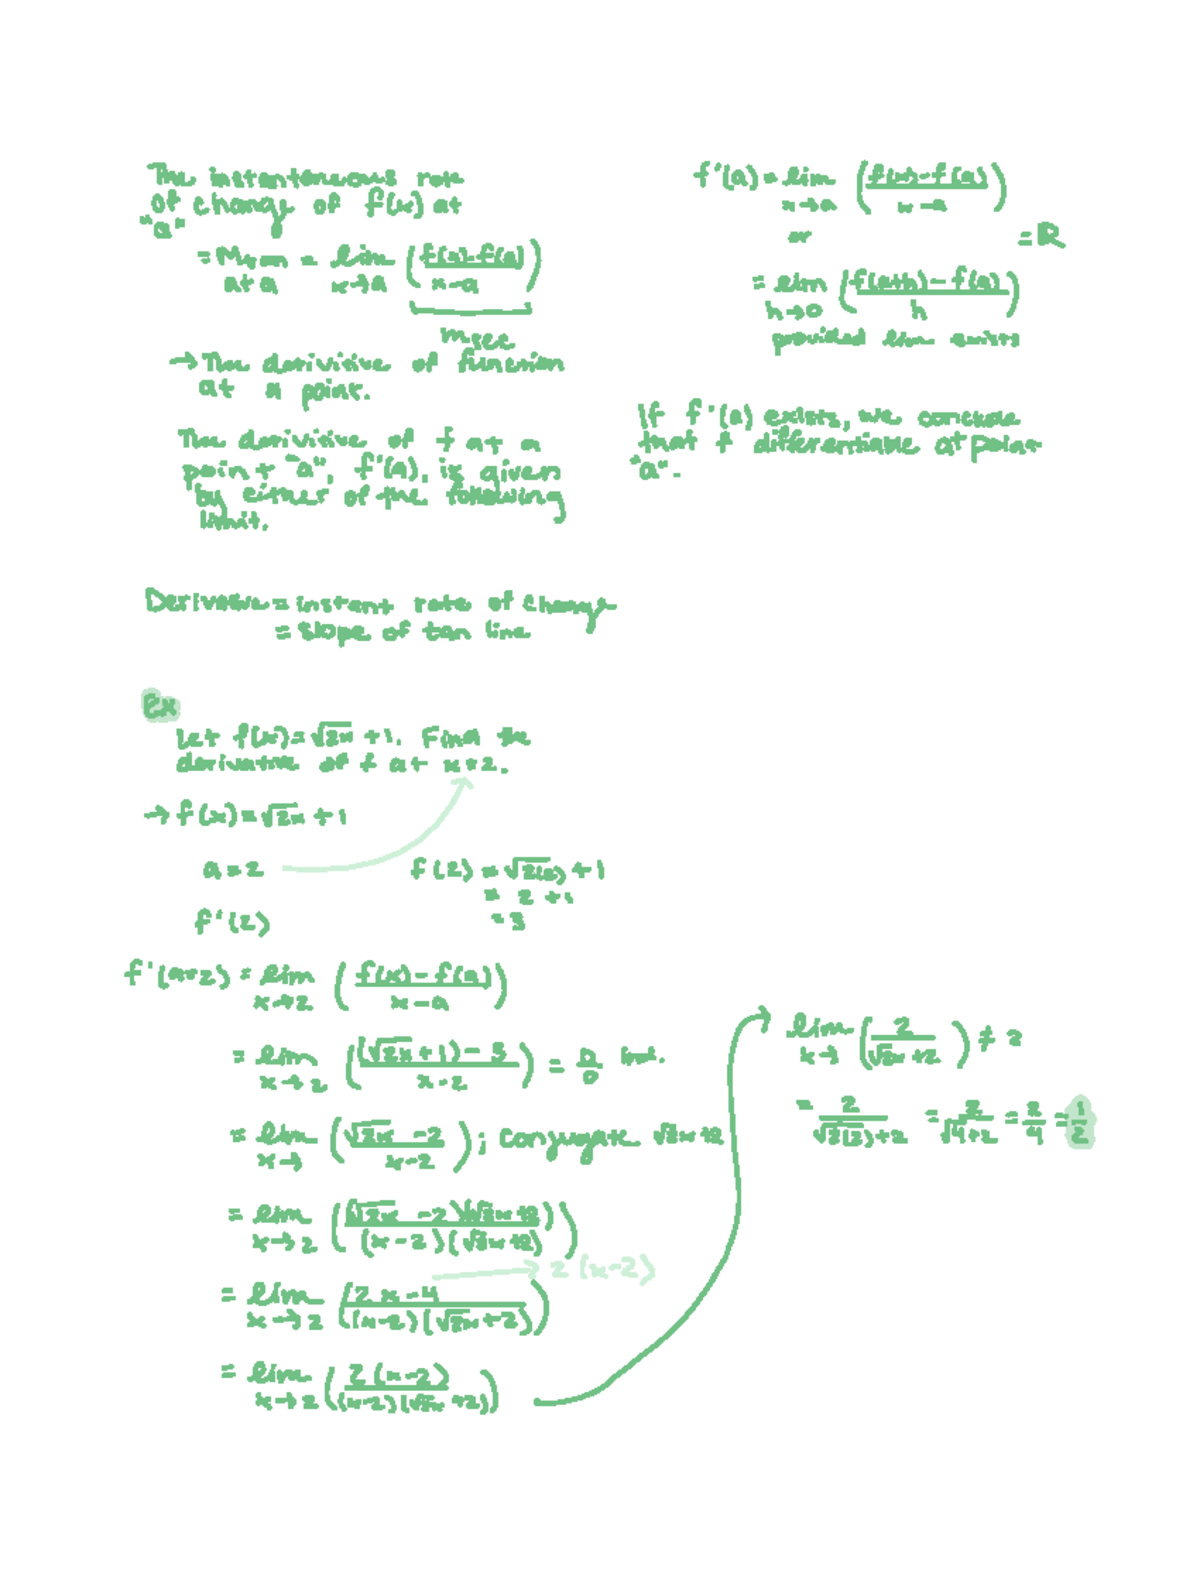 The instantaneous rate
of change of f(x) at
"a"
= Mtan = lim (f(x)-f(a) / x-a)
at a x→a
msec
→ The derivitive of function
at a point.
The derivitive of f at a
point "a", f'(a), is given
by either of the following
limit.
f'(a) = lim (f(x)-f(a) / x-a)
x→a
or
= ℝ
= lim (f(a+h) - f(a) / h)
h→0
provided lim exists
If f'(a) exists, we conclude
that f differentiable at point
"a".
Derivative = instant rate of change
= slope of tan line
Ex
Let f(x) = √2x + 1. Find the
derivative of f at x=2.
→ f(x) = √2x + 1
a = 2
f(2) = √2(2) + 1
= 2 + 1
= 3
f'(2)
f'(a=2) = lim (f(x) - f(a) / x-a)
x→2
= lim ((√2x + 1) - 3 / x-2) = 0/0
x→2
= lim (√2x - 2 / x-2); conjugate √2x+2
x→
= lim ((√2x - 2)(√2x+2) / (x-2)(√2x+2))
x→2
→ 2(x-2)
= lim (2x-4 / (x-2)(√2x+2))
x→2
= lim (2(x-2) / (x-2)(√2x+2))
x→2
lim (2 / √2x+2) ≠ 2
x→
= 2 / √2(2)+2 = 2 / √4+2 = 2/4 = 1/2